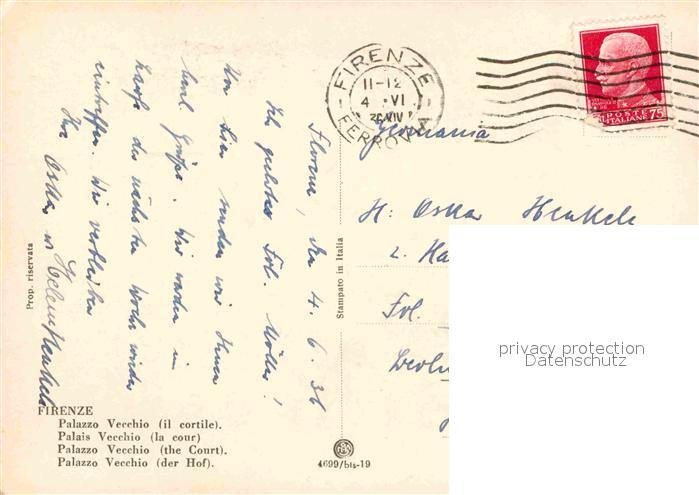 FIRENZE
11-12
4 · VI
36 XIV
FERROVIA
POSTE
ITALIANE 75
Germania
H: Oskar Henkels
z.
Frl.
Florenz, den 4. 6. 36
Frl. Möller!
Von hier senden wir Ihnen
herzl. Grüße. Wir werden im
Laufe der nächsten Woche wieder
eintreffen. Wir verbleiben
Ihre Oskar u Helene Henkels
Prop. riservata
Stampato in Italia
FIRENZE
Palazzo Vecchio (il cortile).
Palais Vecchio (la cour)
Palazzo Vecchio (the Court).
Palazzo Vecchio (der Hof).
4699/bis-19
privacy protection
Datenschutz